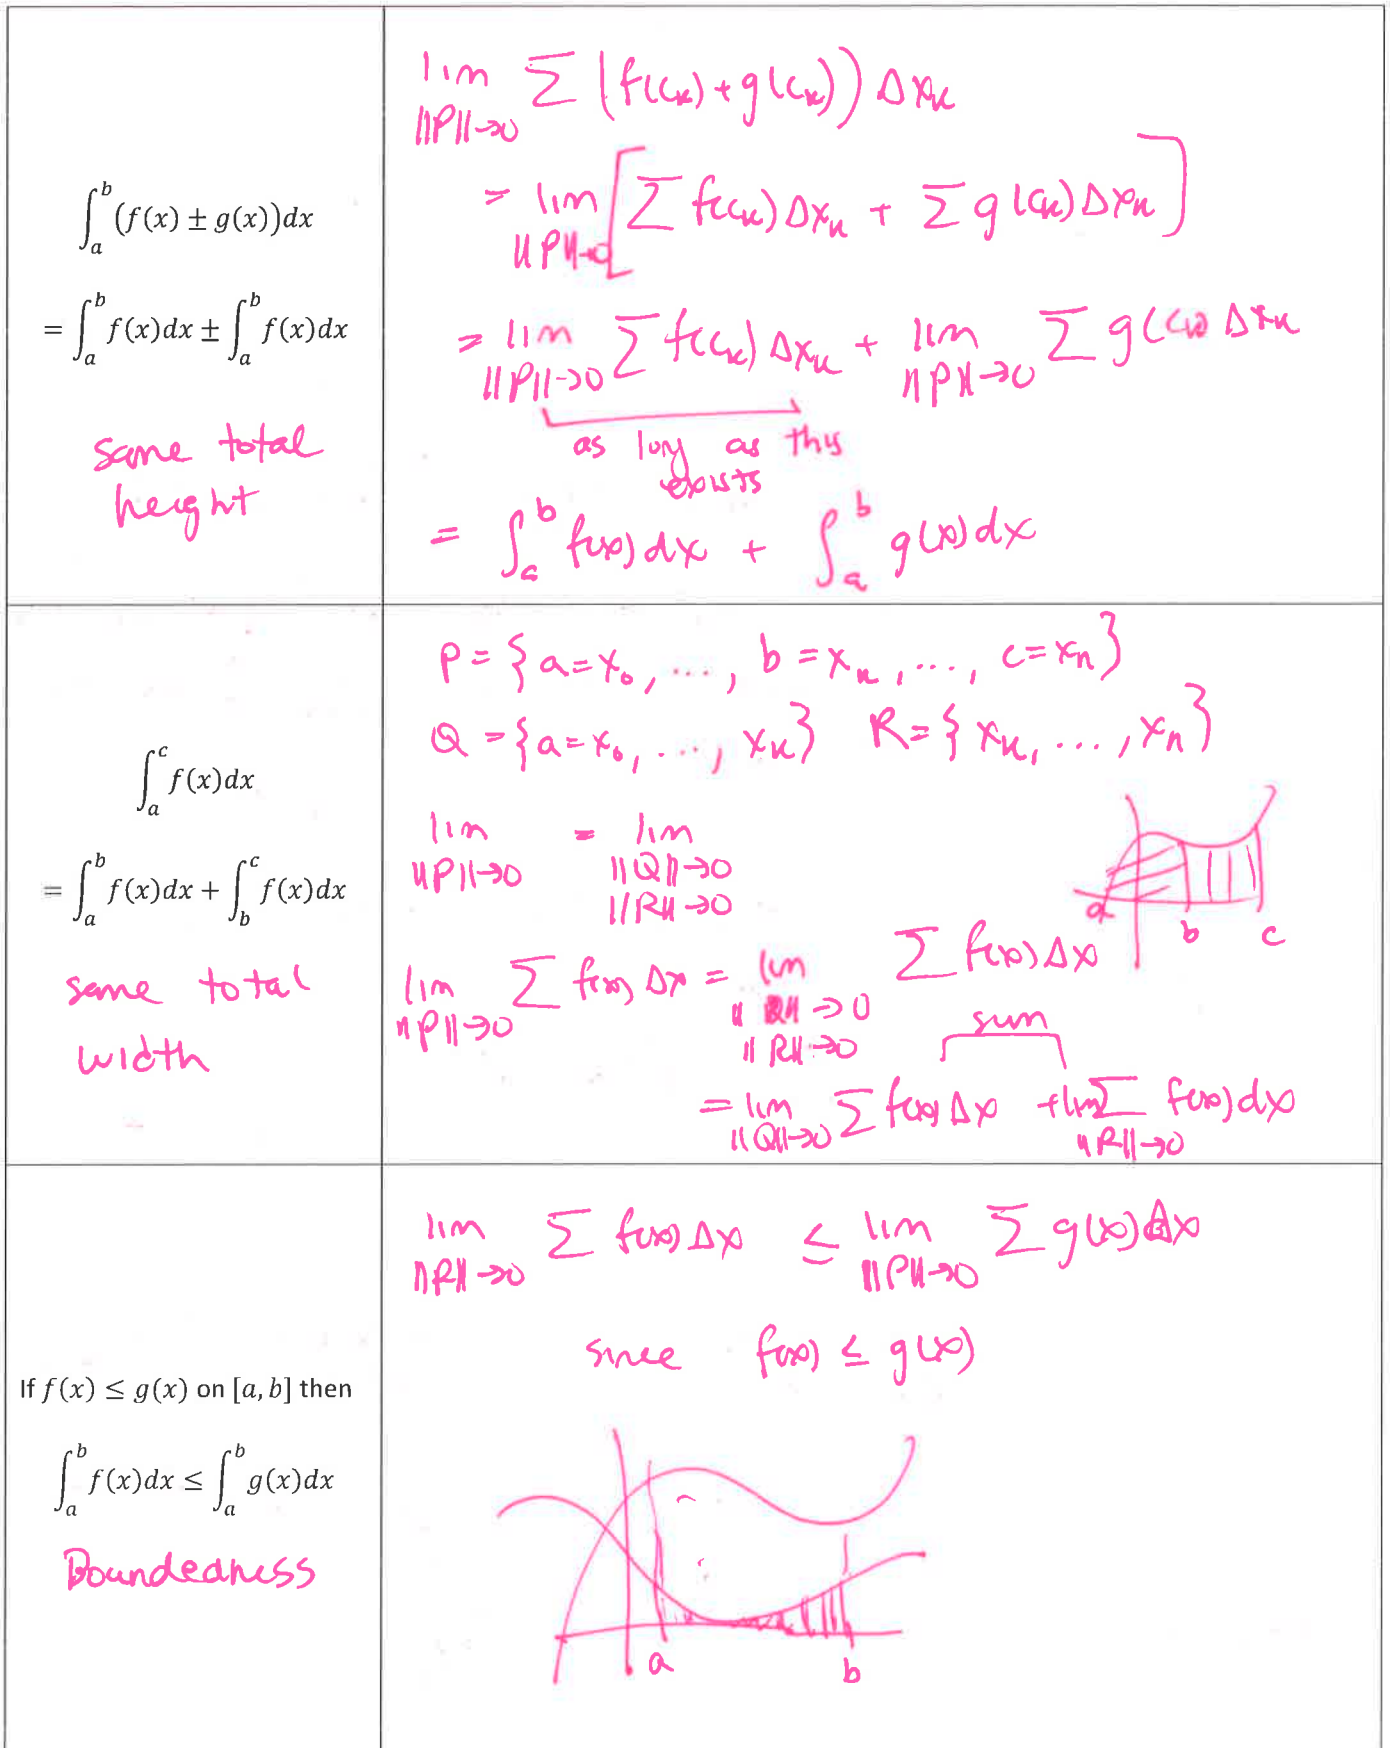 ∫_a^b (f(x) ± g(x))dx
= ∫_a^b f(x)dx ± ∫_a^b f(x)dx
same total
height
lim_{||P||→0} Σ (f(c_k) + g(c_k)) Δx_k
= lim_{||P||→0} [Σ f(c_k) Δx_k + Σ g(c_k) Δx_k]
= lim_{||P||→0} Σ f(c_k) Δx_k + lim_{||P||→0} Σ g(c_k) Δx_k
as long as this
exists
= ∫_a^b f(x) dx + ∫_a^b g(x) dx
∫_a^c f(x)dx
= ∫_a^b f(x)dx + ∫_b^c f(x)dx
same total
width
P = {a = x_0, ..., b = x_k, ..., c = x_n}
Q = {a = x_0, ..., x_k} R = {x_k, ..., x_n}
lim_{||P||→0} = lim_{||Q||→0 ||R||→0}
a b c
lim_{||P||→0} Σ f(x) Δx = lim_{||Q||→0 ||R||→0} Σ f(x) Δx
sum
= lim_{||Q||→0} Σ f(x) Δx + lim_{||R||→0} Σ f(x) dx
If f(x) ≤ g(x) on [a, b] then
∫_a^b f(x)dx ≤ ∫_a^b g(x)dx
Boundedness
lim_{||P||→0} Σ f(x) Δx ≤ lim_{||P||→0} Σ g(x) Δx
since f(x) ≤ g(x)
a b